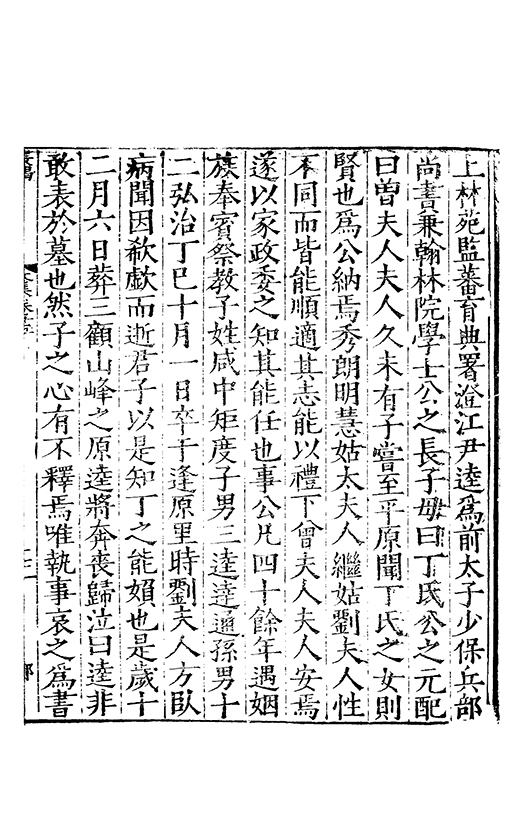 上林苑監蕃育典署澄江尹逵爲前太子少保兵部
尚書兼翰林院學士公之長子毋曰丁氏公之元配
曰曾夫人夫人久未有子嘗至平原聞丁氏之女則
賢也爲公納焉秀朗明慧姑太夫人繼姑劉夫人性
不同而皆能順適其志能以禮下曾夫人夫人安焉
遂以家政委之知其能任也事公凡四十餘年遇姻
族奉賓祭教子姓咸中矩度子男三逵達通孫男十
二弘治丁巳十月一日卒于逢原里時劉夫人方臥
病聞因欷歔而逝君子以是知丁之能嬪也是歲十
二月六日葬三顧山峰之原逵將奔喪歸泣曰逵非
敢表於墓也然子之心有不釋焉唯執事哀之爲書